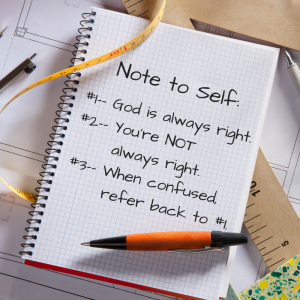 Note to Self:
#1-- God is always right.
#2-- You're NOT
always right.
#3-- When confused,
refer back to #1.
10